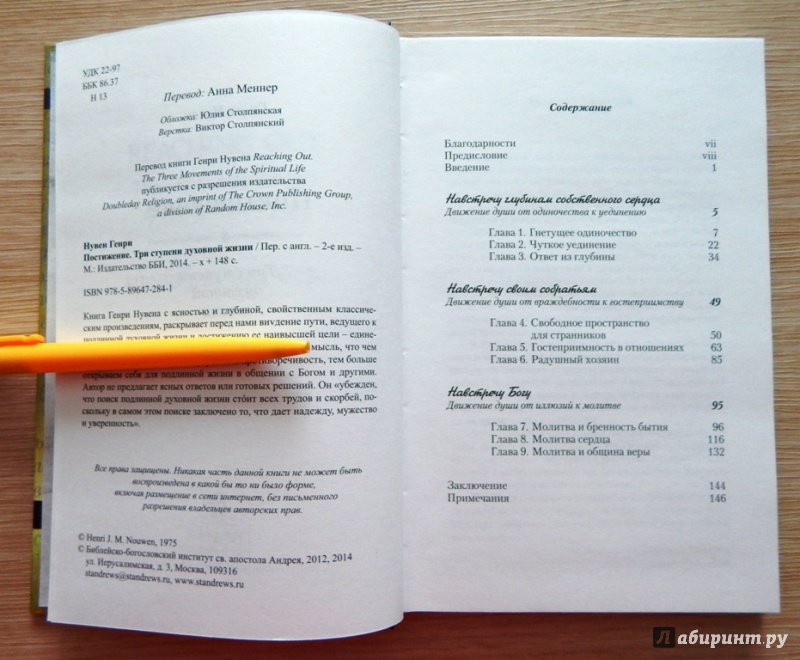 УДК 22-97
ББК 86.37
Н 13
Перевод: Анна Меннер
Обложка: Юлия Столпянская
Верстка: Виктор Столпянский
Перевод книги Генри Нувена Reaching Out,
The Three Movements of the Spiritual Life
публикуется с разрешения издательства
Doubleday Religion, an imprint of The Crown Publishing Group,
a division of Random House, Inc.
Нувен Генри
Постижение. Три ступени духовной жизни / Пер. с англ. – 2-е изд. –
М.: Издательство ББИ, 2014. – x + 148 с.
ISBN 978-5-89647-284-1
Книга Генри Нувена с ясностью и глубиной, свойственным классичес-
ким произведениям, раскрывает перед нами видение пути, ведущего к
подлинной духовной жизни и достижению ее наивысшей цели – едине-
мысль, что чем
противоречивость, тем больше
открываем себя для подлинной жизни в общении с Богом и другими.
Автор не предлагает ясных ответов или готовых решений. Он «убежден,
что поиск подлинной духовной жизни стóит всех трудов и скорбей, по-
скольку в самом этом поиске заключено то, что дает надежду, мужество
и уверенность».
Все права защищены. Никакая часть данной книги не может быть
воспроизведена в какой бы то ни было форме,
включая размещение в сети интернет, без письменного
разрешения владельцев авторских прав.
© Henri J. M. Nouwen, 1975
© Библейско-богословский институт св. апостола Андрея, 2012, 2014
ул. Иерусалимская, д. 3, Москва, 109316
standrews@standrews.ru, www.standrews.ru
Содержание
Благодарности vii
Предисловие viii
Введение 1
Навстречу глубинам собственного сердца
Движение души от одиночества к уединению 5
Глава 1. Гнетущее одиночество 7
Глава 2. Чуткое уединение 22
Глава 3. Ответ из глубины 34
Навстречу своим собратьям
Движение души от враждебности к гостеприимству 49
Глава 4. Свободное пространство
для странников 50
Глава 5. Гостеприимность в отношениях 63
Глава 6. Радушный хозяин 85
Навстречу Богу
Движение души от иллюзий к молитве 95
Глава 7. Молитва и бренность бытия 96
Глава 8. Молитва сердца 116
Глава 9. Молитва и община веры 132
Заключение 144
Примечания 146
Лабиринт.ру